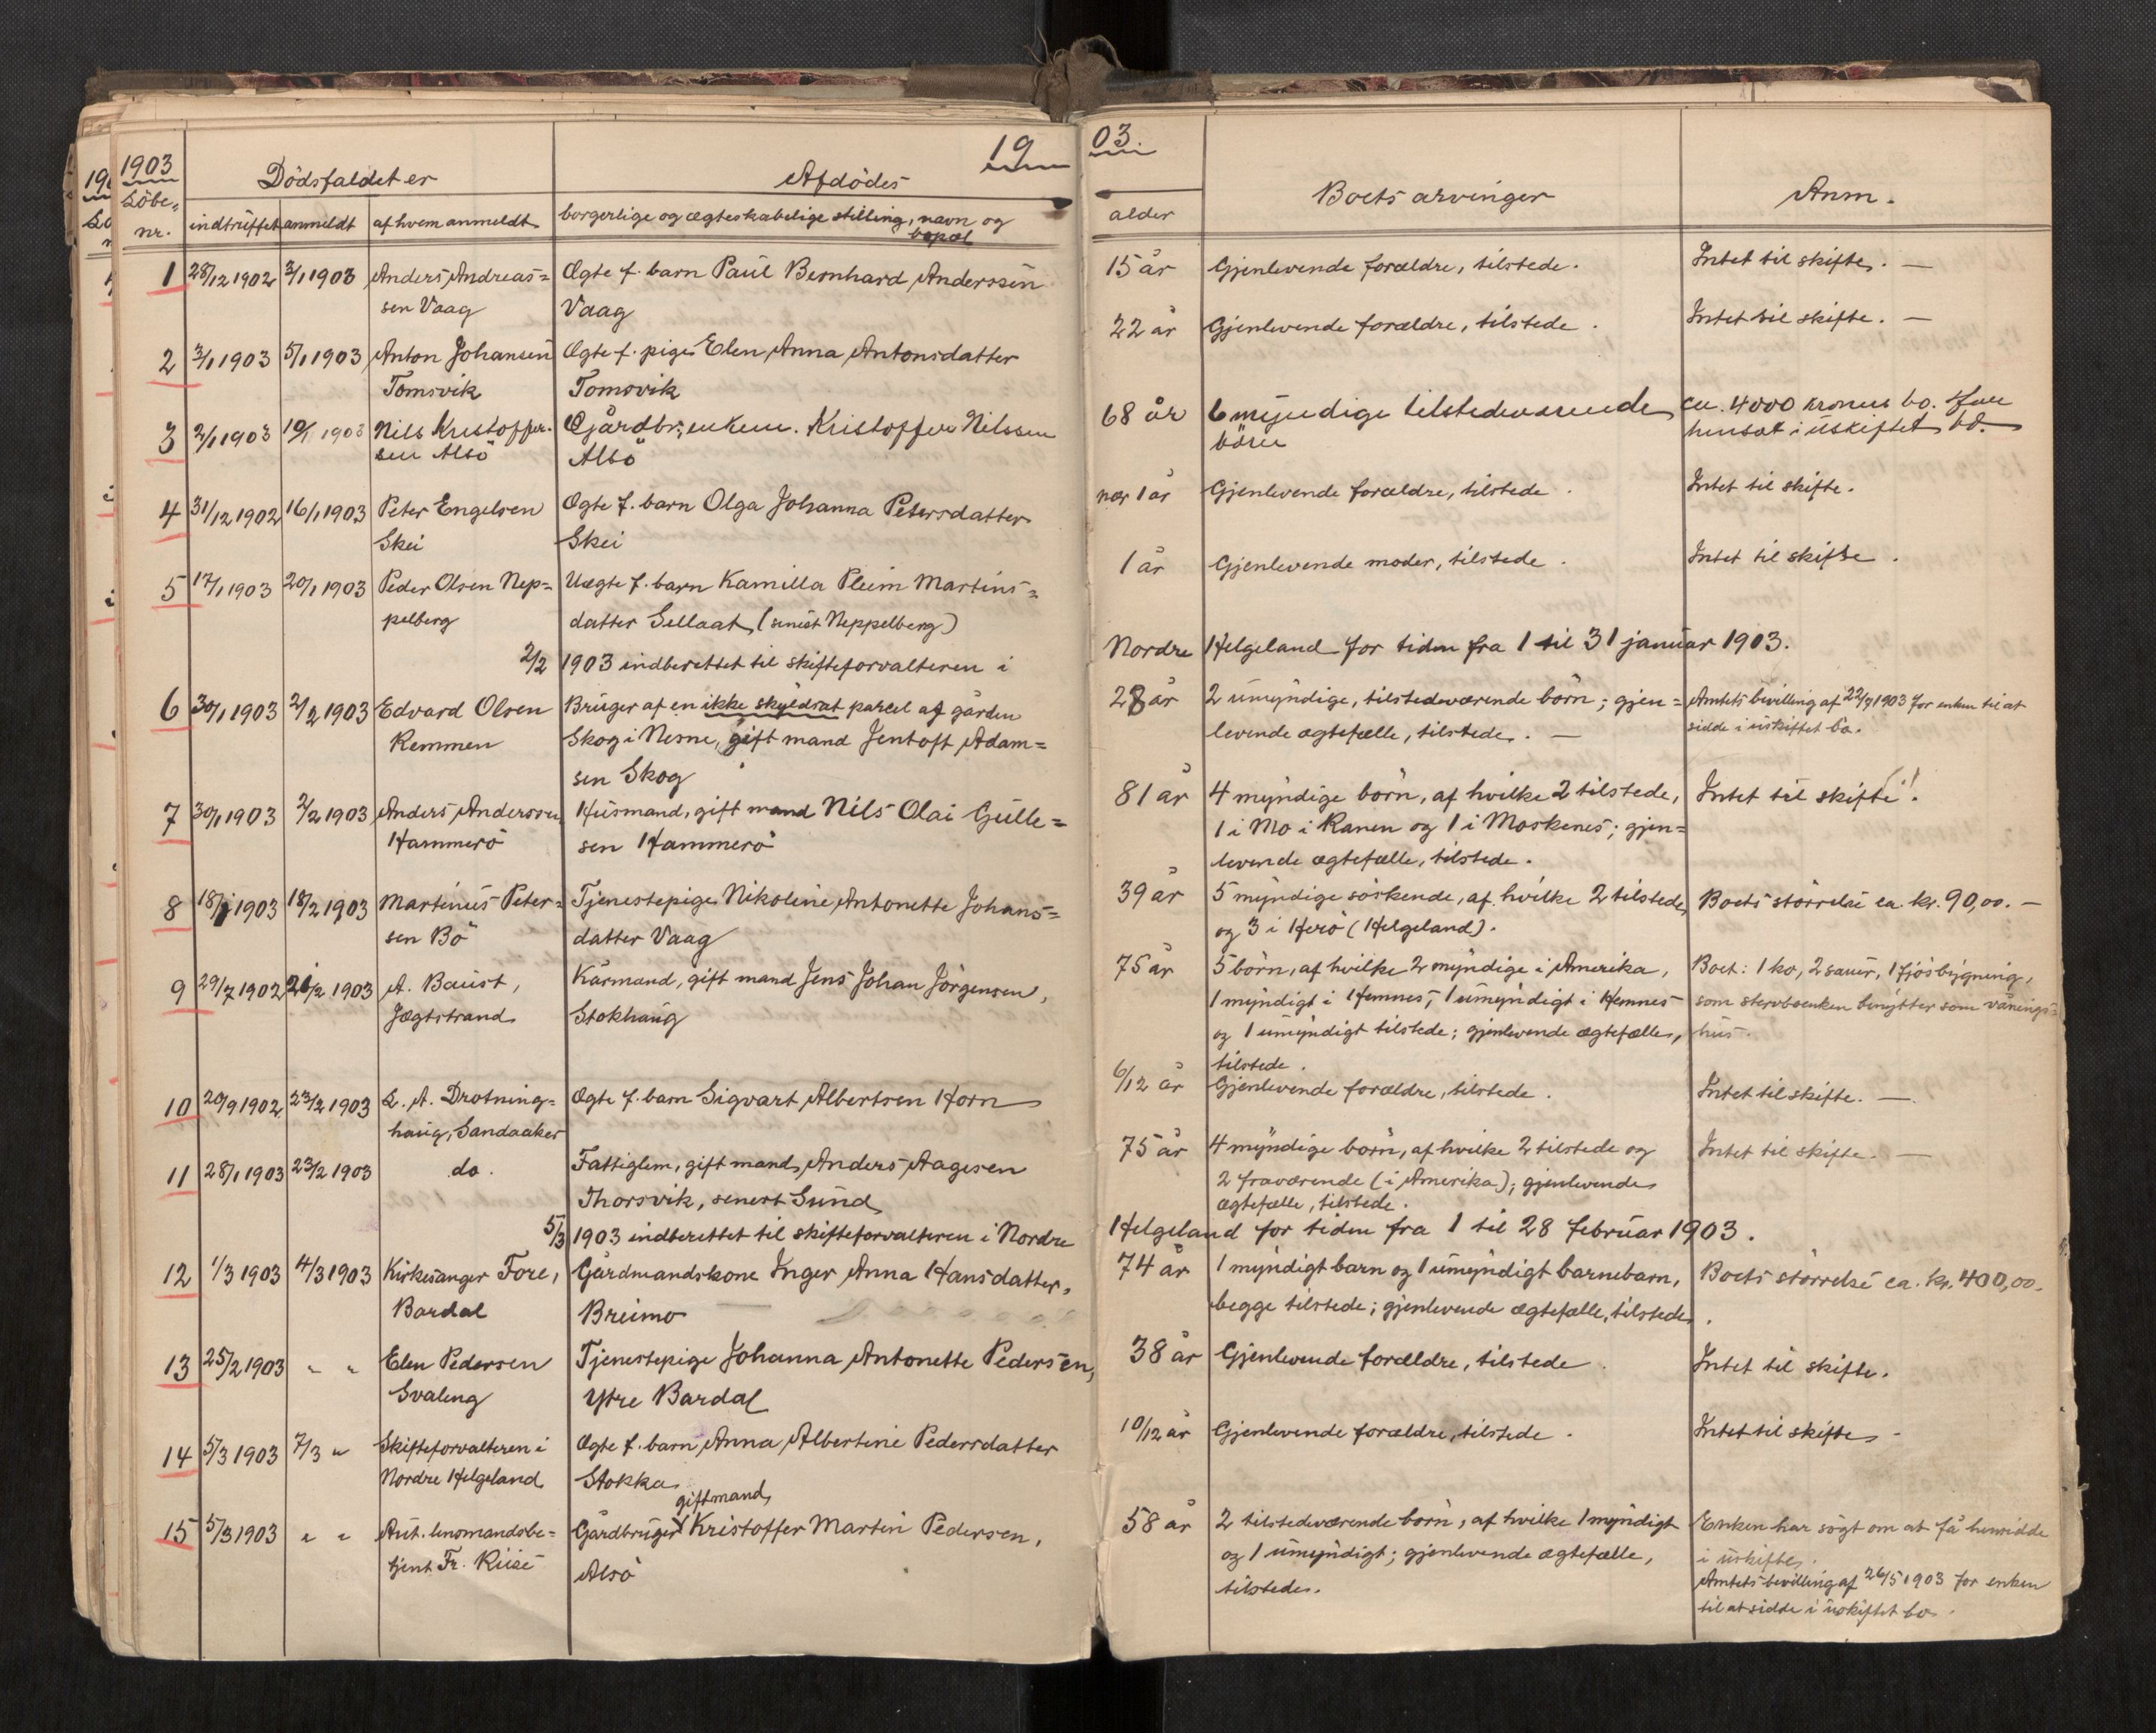 1903
Löbe-
nr.
Dödsfaldet er
indtruffet anmeldt af hvem anmeldt
Afdödes
borgerlige og ægteskabelige stilling, navn og
bopæl
19
03.
alder
Boets arvinger
Anm.
1 28/12 1902 3/1 1903 Anders Andreas= Ægte f. barn Paul Bernhard Anderssen 15 år Gjenlevende forældre, tilstede. Intet til skifte. —
sen Vaag Vaag
2 3/1 1903 5/1 1903 Anton Johansen Ægte f. pige Elen Anna Antonsdatter 22 år Gjenlevende forældre, tilstede. Intet til skifte. —
Tomsvik Tomsvik
3 2/1 1903 10/1 1903 Nils Kristoffer- Gårdbr., enkem. Kristoffer Nilssen 68 år 6 myndige tilstedeværende ca. 4000 kroners bo.
sen Alsö Alsö börn hensat i uskiftet bo.
4 31/12 1902 16/1 1903 Peter Engelsen Ægte f. barn Olga Johanna Petersdatter nær 1 år Gjenlevende forældre, tilstede. Intet til skifte.
Skei Skei
5 17/1 1903 20/1 1903 Peder Olsen Nep= Uægte f. barn Kamilla Pleim Martins= 1 år Gjenlevende moder, tilstede. Intet til skifte.
pelberg datter Sellaat (senest Neppelberg)
2/2 1903 indberettet til skifteforvalteren i Nordre Helgeland for tiden fra 1 til 31 januar 1903.
6 30/1 1903 2/2 1903 Edvard Olsen Bruger af en ikke skyldsat parcel af gården 28 år 2 umyndige, tilstedeværende börn; gjen= Amtets bevilling af 22/9 1903 for enken til at
Remmen Skog i Nesne, gift mand Jentoft Adam= levende ægtefælle, tilstede. — sidde i uskiftet bo.
sen Skog
7 30/1 1903 2/2 1903 Anders Anderssen Husmand, gift mand Nils Olai Gulle= 81 år 4 myndige börn, af hvilke 2 tilstede, Intet til skifte!
Hammerö sen Hammerö 1 i Mo i Ranen og 1 i Moskenes; gjen=
levende ægtefælle, tilstede.
8 18/1 1903 18/2 1903 Martinus Peter= Tjenestepige Nikoline Antonette Johans= 39 år 5 myndige söskende, af hvilke 2 tilstede, Boets störrelse ca. kr. 90,00. —
sen Bö datter Vaag og 3 i Herö (Helgeland).
9 29/7 1902 21/2 1903 A. Baust, Kårmand, gift mand Jens Johan Jörgensen, 75 år 5 börn, af hvilke 2 myndige i Amerika, Boet: 1 ko, 2 sauer, 1 fjösbygning,
Jægtstrand Stokhaug 1 myndigt i Hemnes, 1 umyndigt i Hemnes som stervboenken benytter som vånings=
og 1 umyndigt tilstede; gjenlevende ægtefælle, hus.
tilstede.
10 20/9 1902 23/2 1903 L. A. Drotning= Ægte f. barn Sigvart Albertsen Horn 6/12 år Gjenlevende forældre, tilstede. Intet til skifte. —
haug, Sandaaker
11 28/1 1903 23/2 1903 do. Fattiglem, gift mand, Anders Aagesen 75 år 4 myndige börn, af hvilke 2 tilstede og Intet til skifte. —
Thorsvik, senest Sund 2 fraværende (i Amerika); gjenlevende
ægtefælle, tilstede.
5/3 1903 indberettet til skifteforvalteren i Nordre Helgeland for tiden fra 1 til 28 februar 1903.
12 1/3 1903 4/3 1903 Kirkesanger Fore, Gårdmandskone Inger Anna Hansdatter, 74 år 1 myndigt barn og 1 umyndigt barnebarn, Boets störrelse ca. kr. 400,00.
Bardal Breimo begge tilstede; gjenlevende ægtefælle, tilstede.
13 25/2 1903 " " Elen Pedersen Tjenestepige Johanna Antonette Pedersen, 38 år Gjenlevende forældre, tilstede. Intet til skifte.
Svaleng Ytre Bardal
14 5/3 1903 7/3 " Skifteforvalteren i Ægte f. barn Anna Albertine Pedersdatter 10/12 år Gjenlevende forældre, tilstede. Intet til skifte.
Nordre Helgeland Stokka
gift mand,
15 5/3 1903 " " Aut. lensmandsbe= Gårdbruger Kristoffer Martin Pedersen, 58 år 2 tilstedeværende börn, af hvilke 1 myndigt Enken har sögt om at få hensidde
tjent Fr. Riise Alsö og 1 umyndigt; gjenlevende ægtefælle, i uskifte.
tilstede. Amtets bevilling af 26/5 1903 for enken
til at sidde i uskiftet bo.